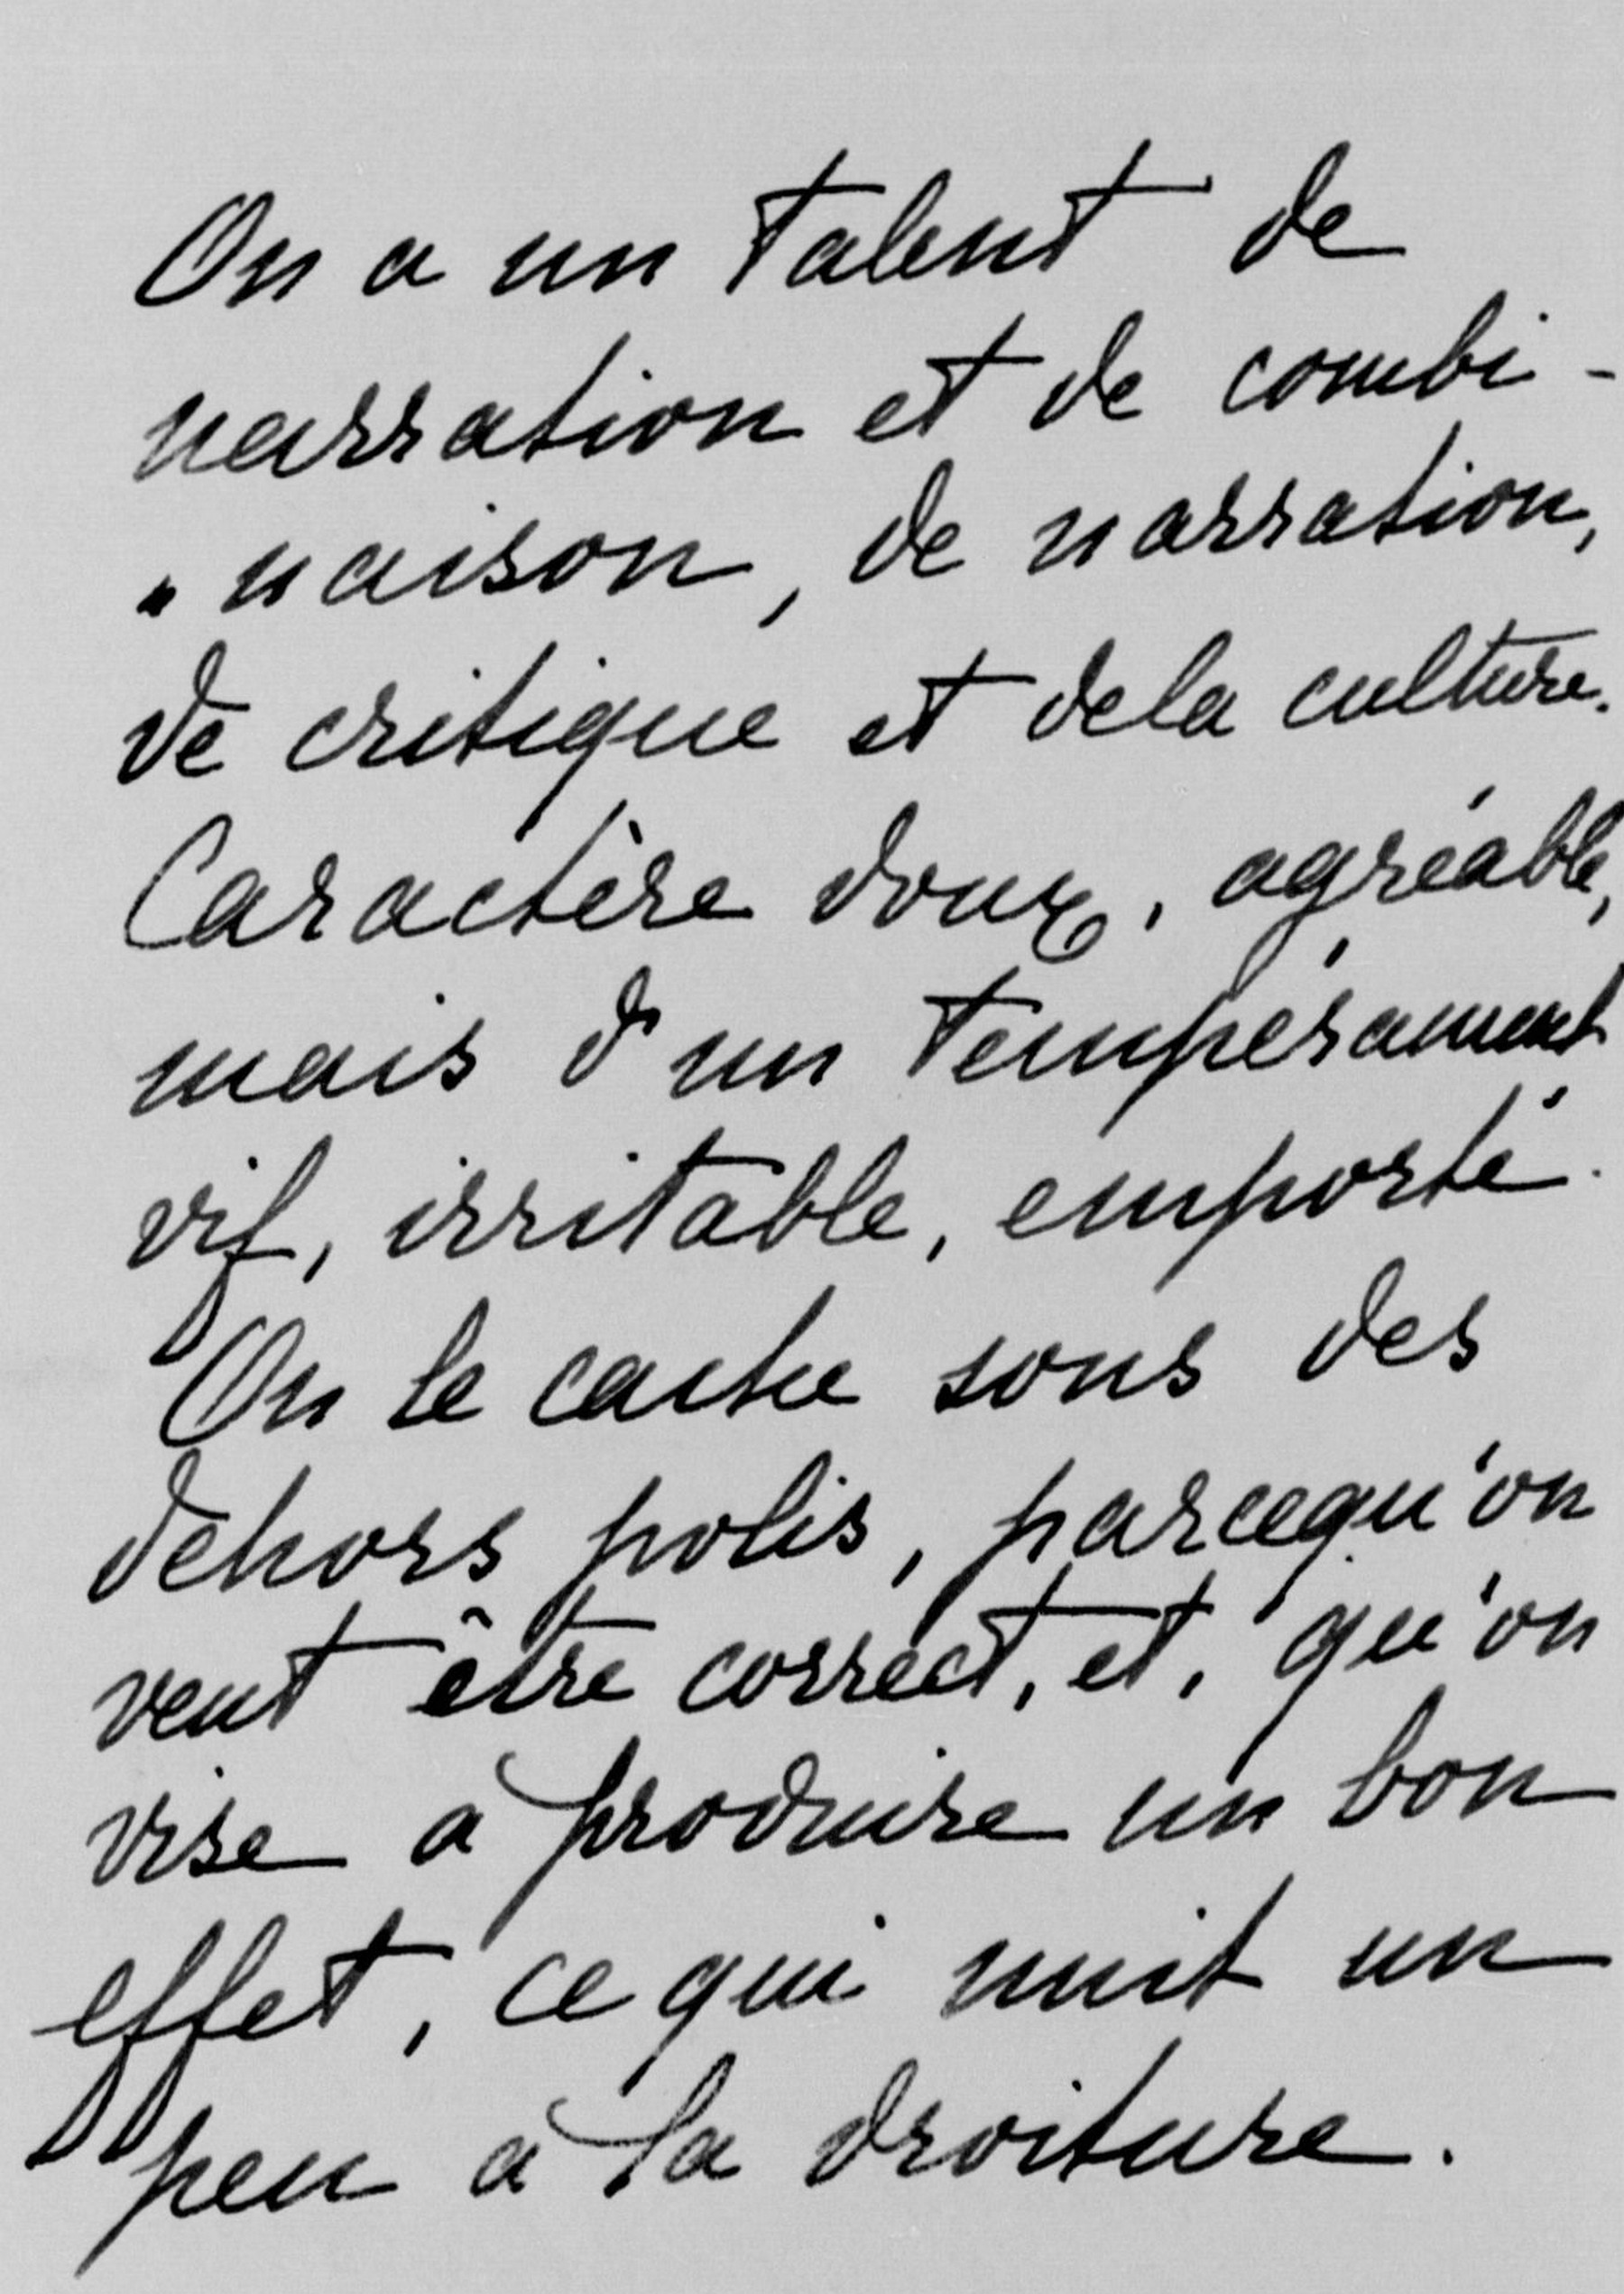 On a un talent de
narration et de combi-
-naison, de narration,
de critique et dela culture.
Caractère doux, agréable,
mais d'un tempérament
vif, irritable, emporté.
On le cache sous des
dehors polis, parcequ'on
veut être correct, et, qu'on
vise à produire un bon
effet, ce qui nuit un
peu à la droiture.